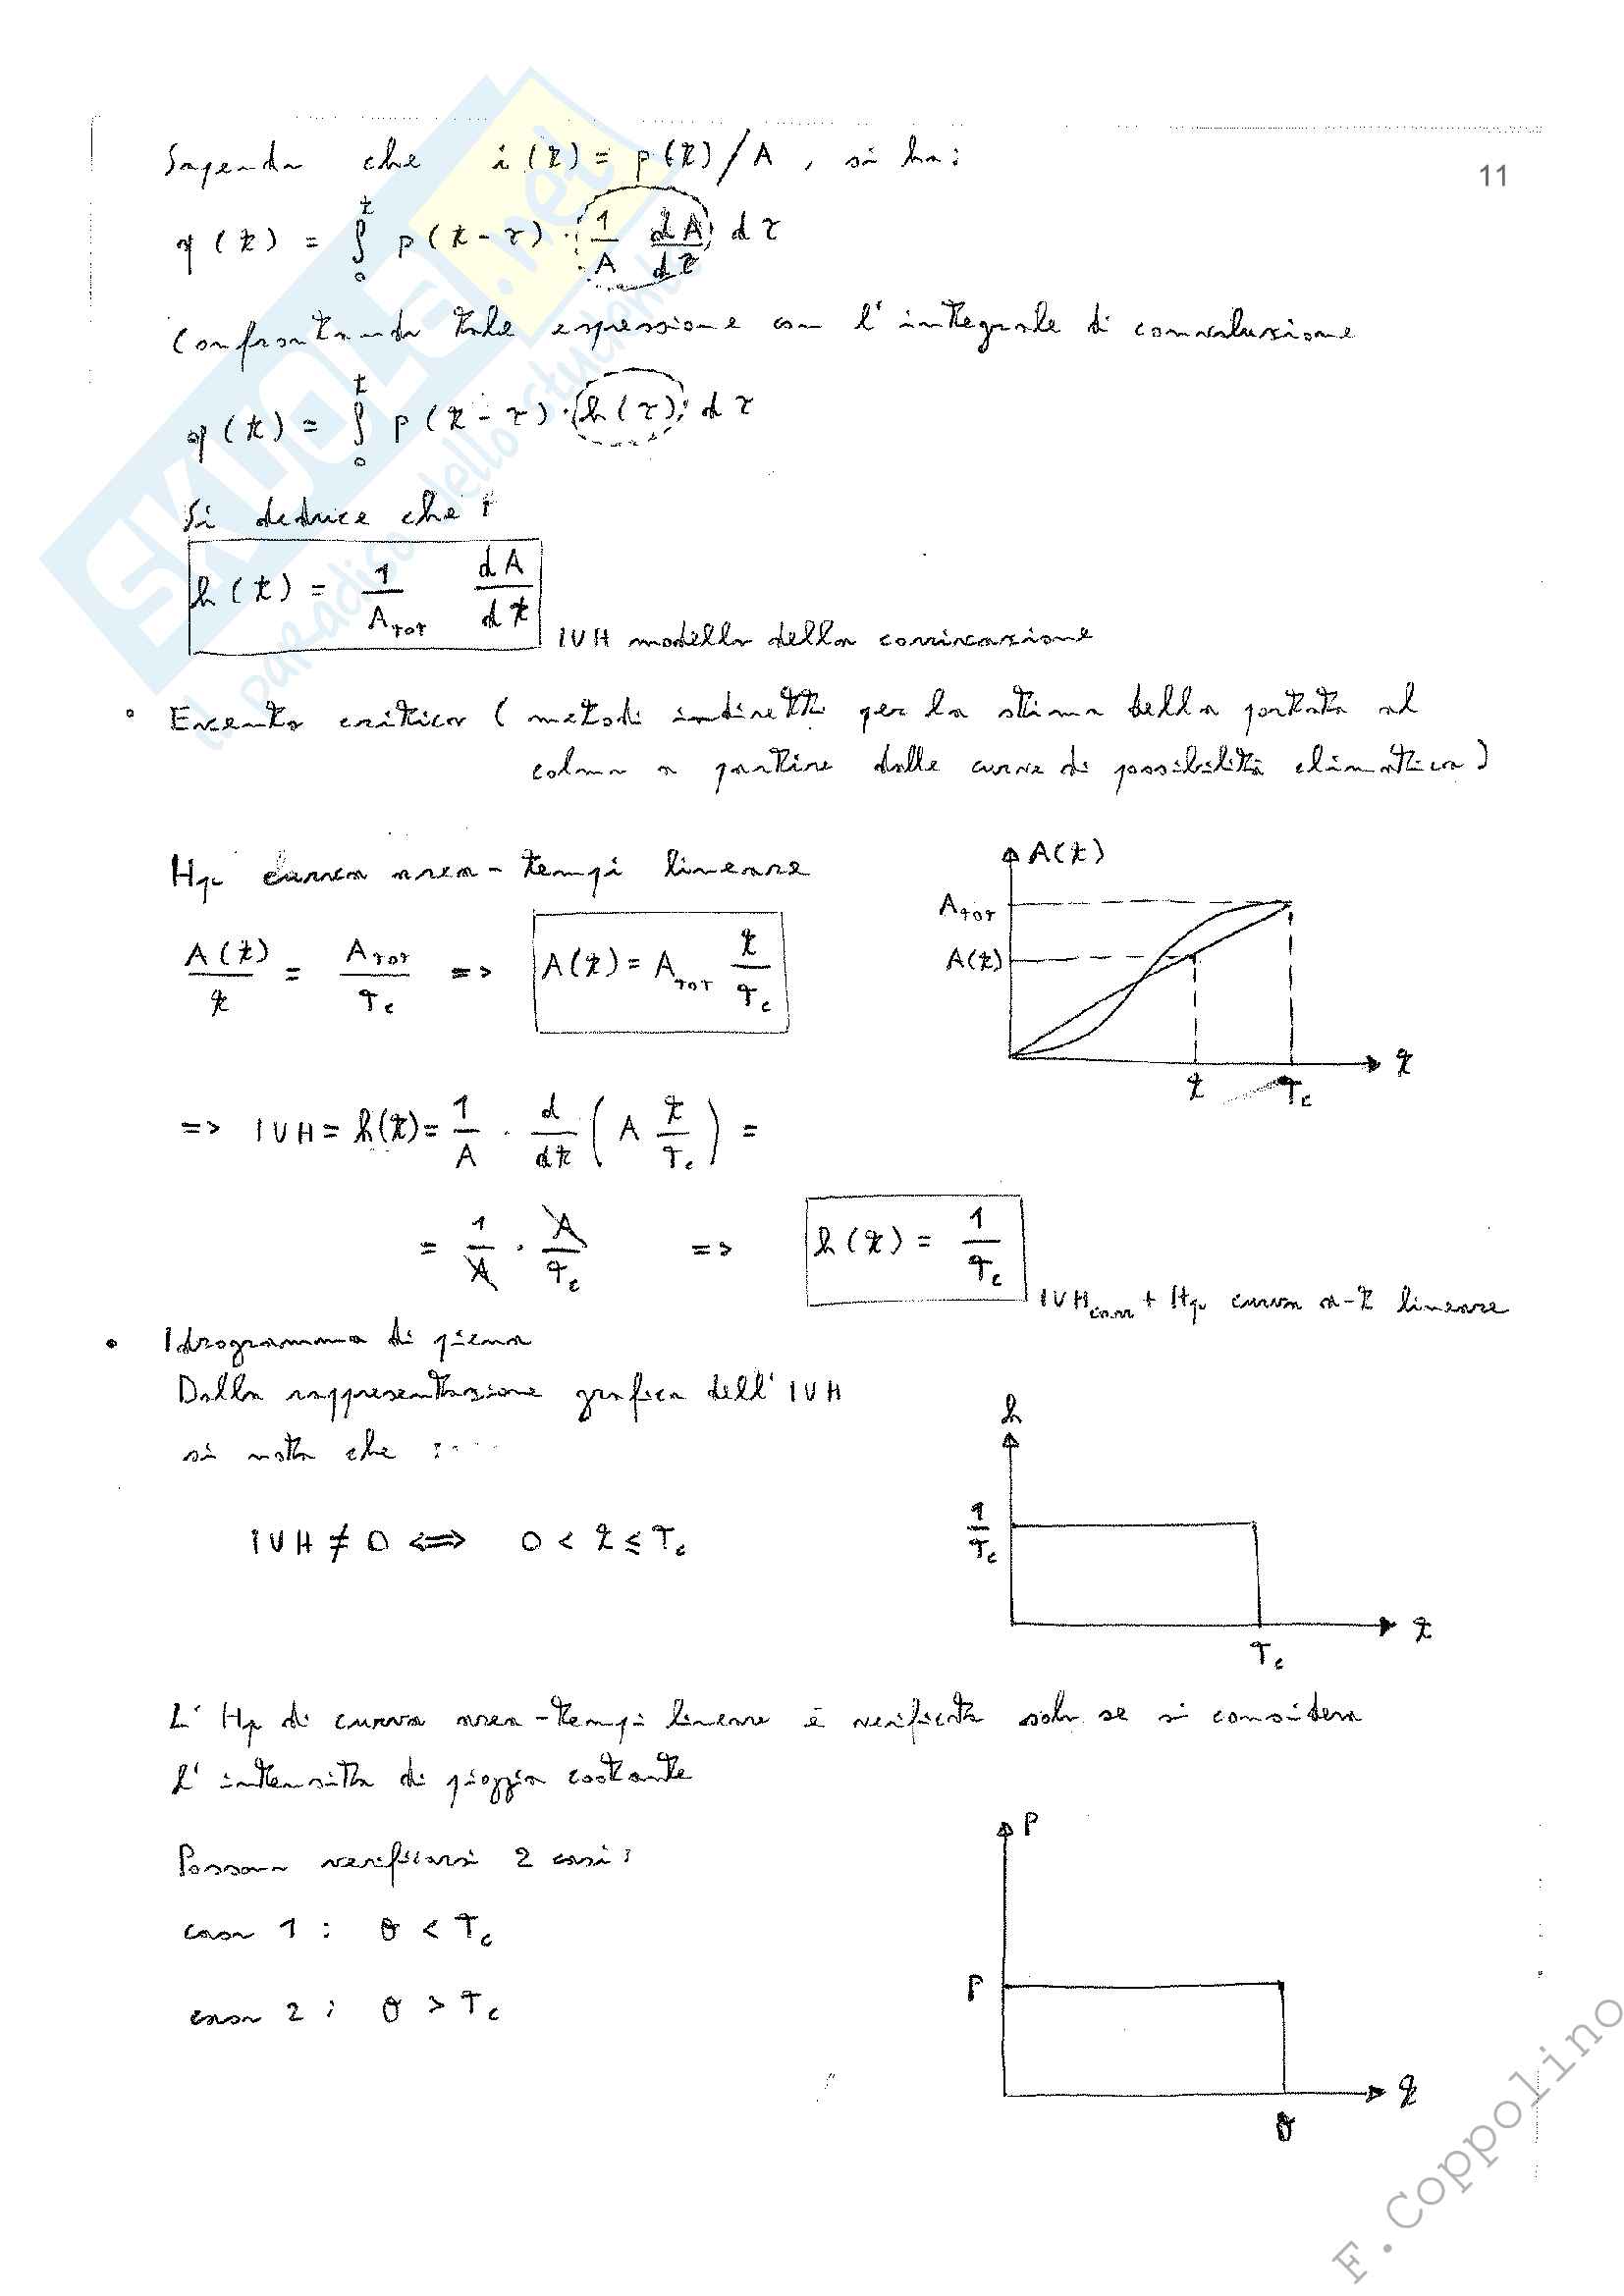 11
Sapendo che i(t) = p(t)/A , si ha:
q(t) = ∫₀ᵗ p(t-τ) · 1/A dA/dτ dτ
Confrontando tale espressione con l'integrale di convoluzione
q(t) = ∫₀ᵗ p(t-τ) · h(τ) dτ
Si deduce che:
h(t) = 1/A_TOT dA/dt IUH modello della corrivazione
• Evento critico (metodi indiretti per la stima della portata al
colmo a partire dalle curve di possibilità climatica)
Hp curva area-tempi lineare
A(t)/t = A_TOT/T_c => A(t) = A_TOT t/T_c
A(t)
A_TOT
A(t)
t
t
T_c
=> IUH = h(t) = 1/A · d/dt (A t/T_c) =
= 1/A · A/T_c => h(t) = 1/T_c
IUH_corr + Hp curva a-t lineare
• Idrogramma di piena
Dalla rappresentazione grafica dell'IUH
si nota che :
IUH ≠ 0 <=> 0 < t ≤ T_c
h
1/T_c
t
T_c
L'Hp di curva area-tempi lineare è verificata solo se si considera
l'intensità di pioggia costante
Possono verificarsi 2 casi:
caso 1 : θ < T_c
caso 2 : θ > T_c
P
P
t
θ
SKUOLA.net
il paradiso dello studente
F.Coppolino